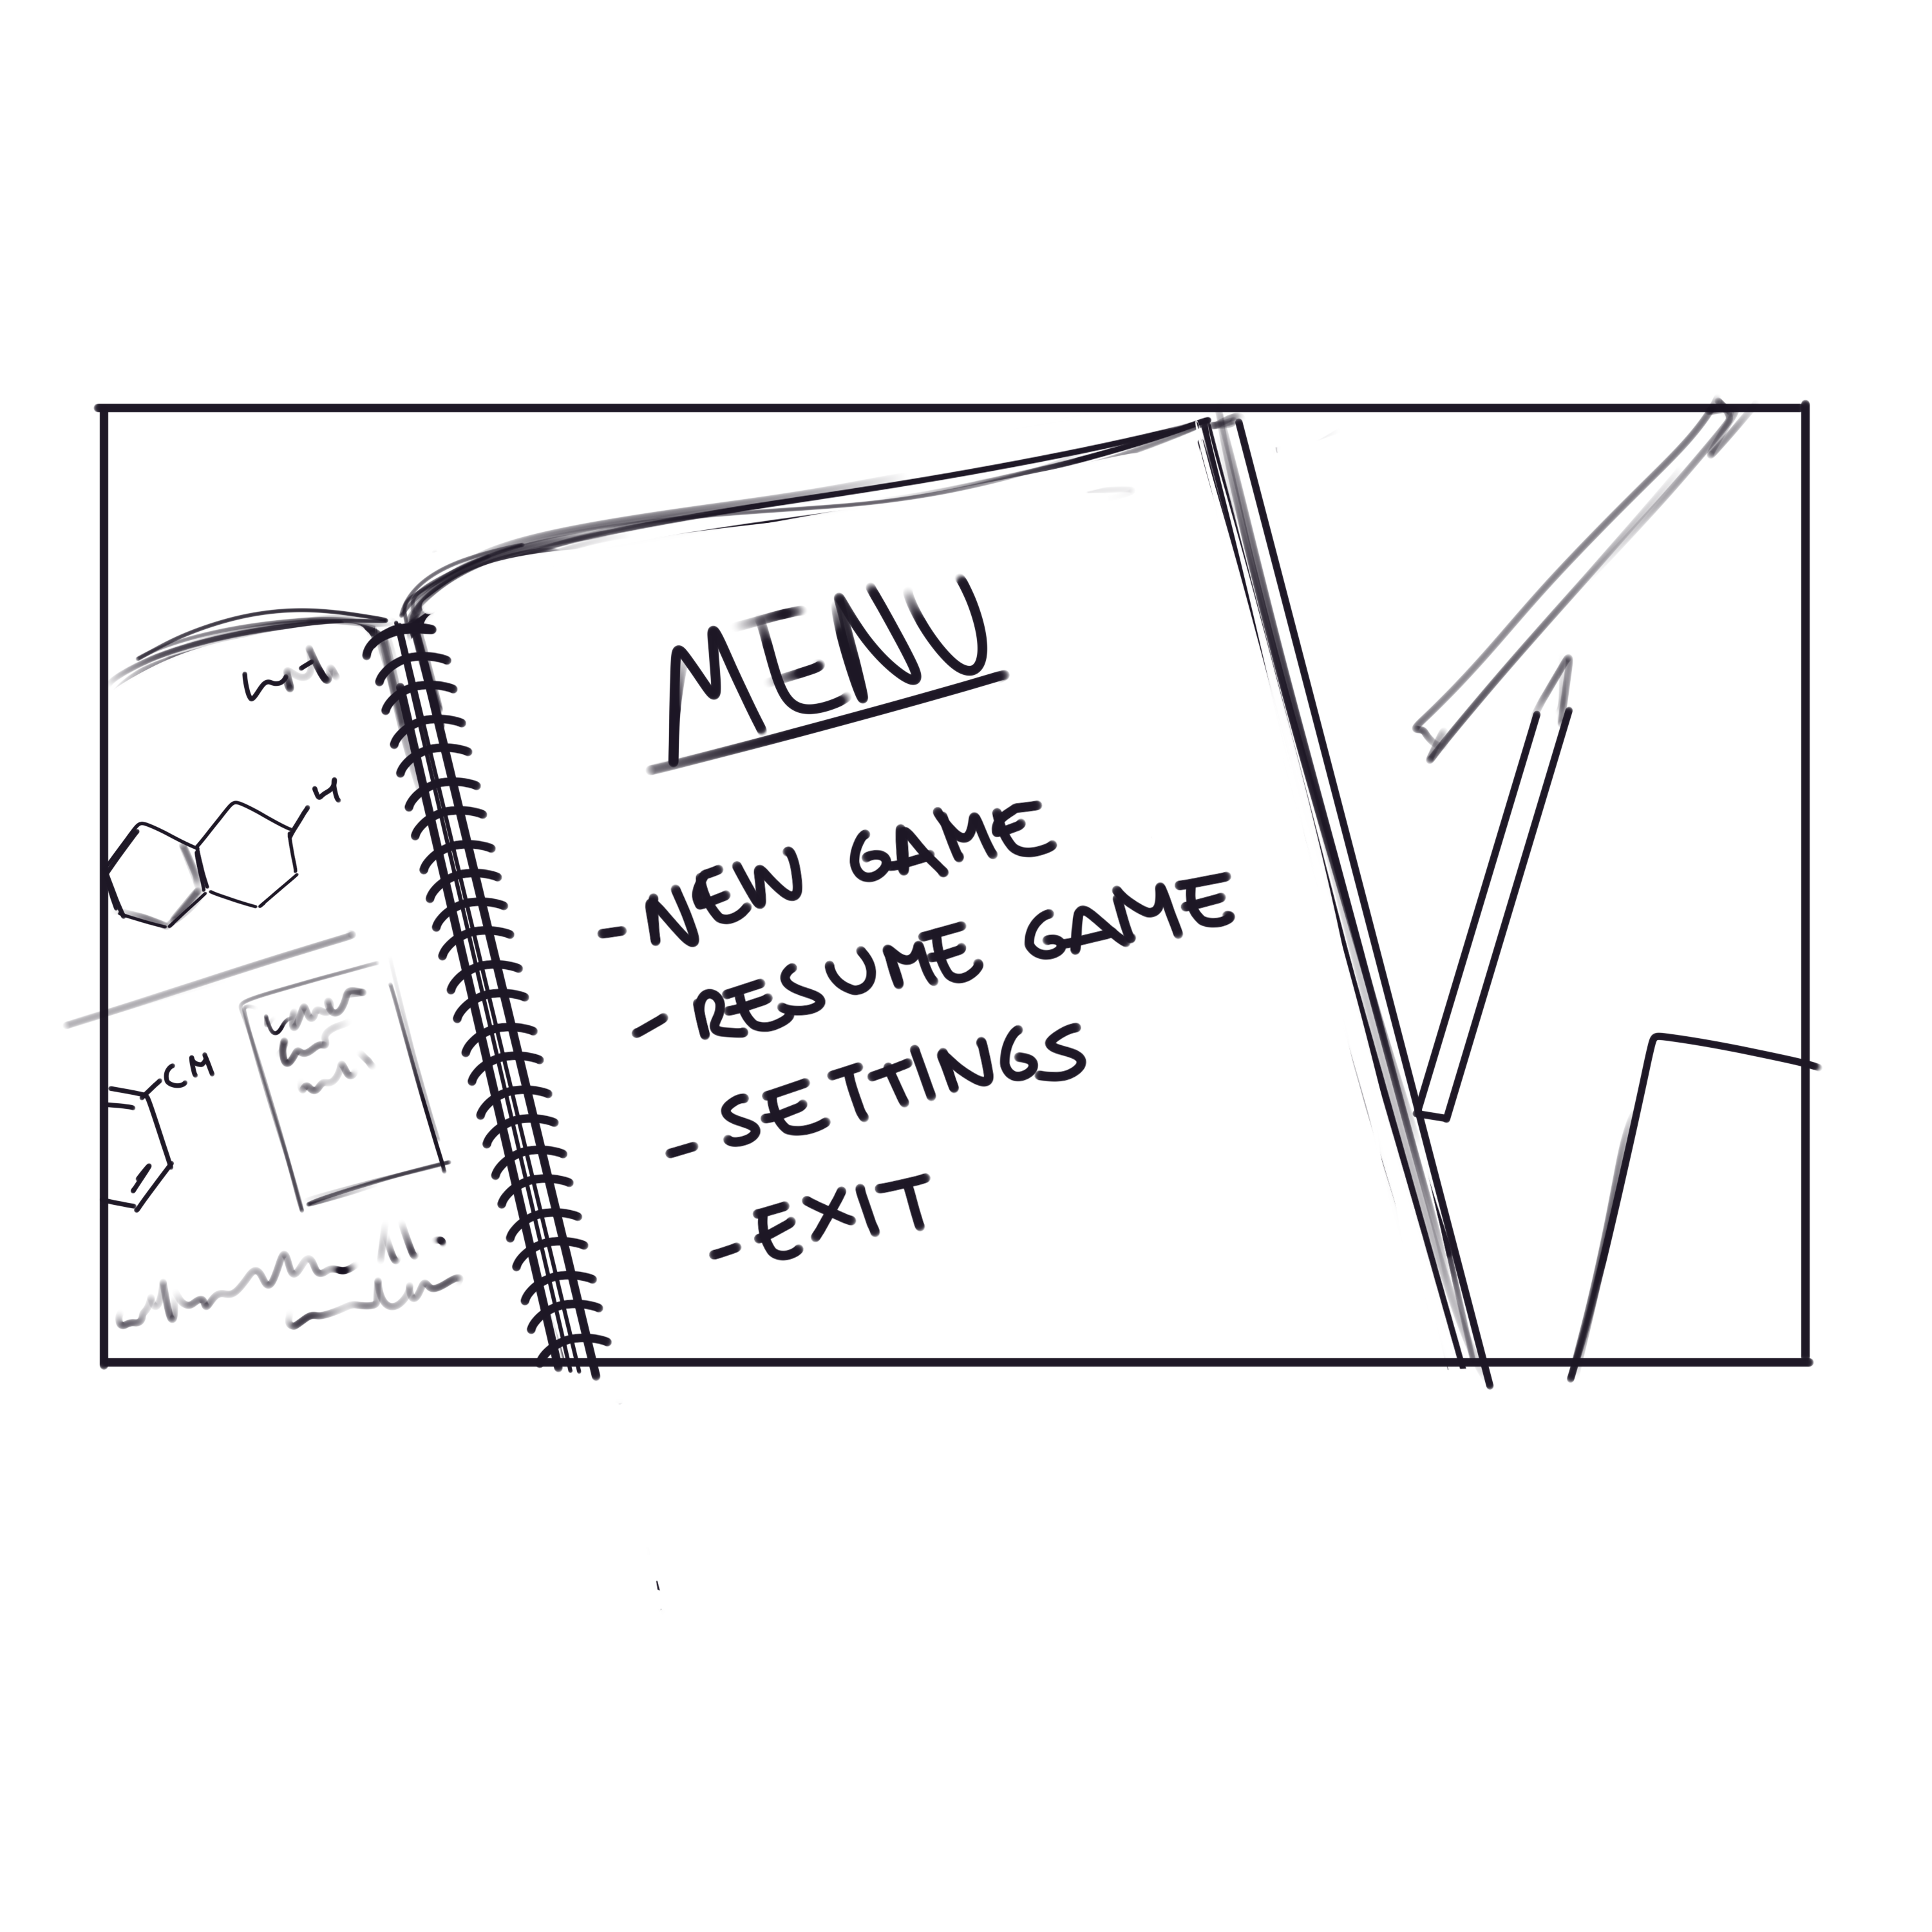 MENU
- NEW GAME
- RESUME GAME
- SETTINGS
- EXIT